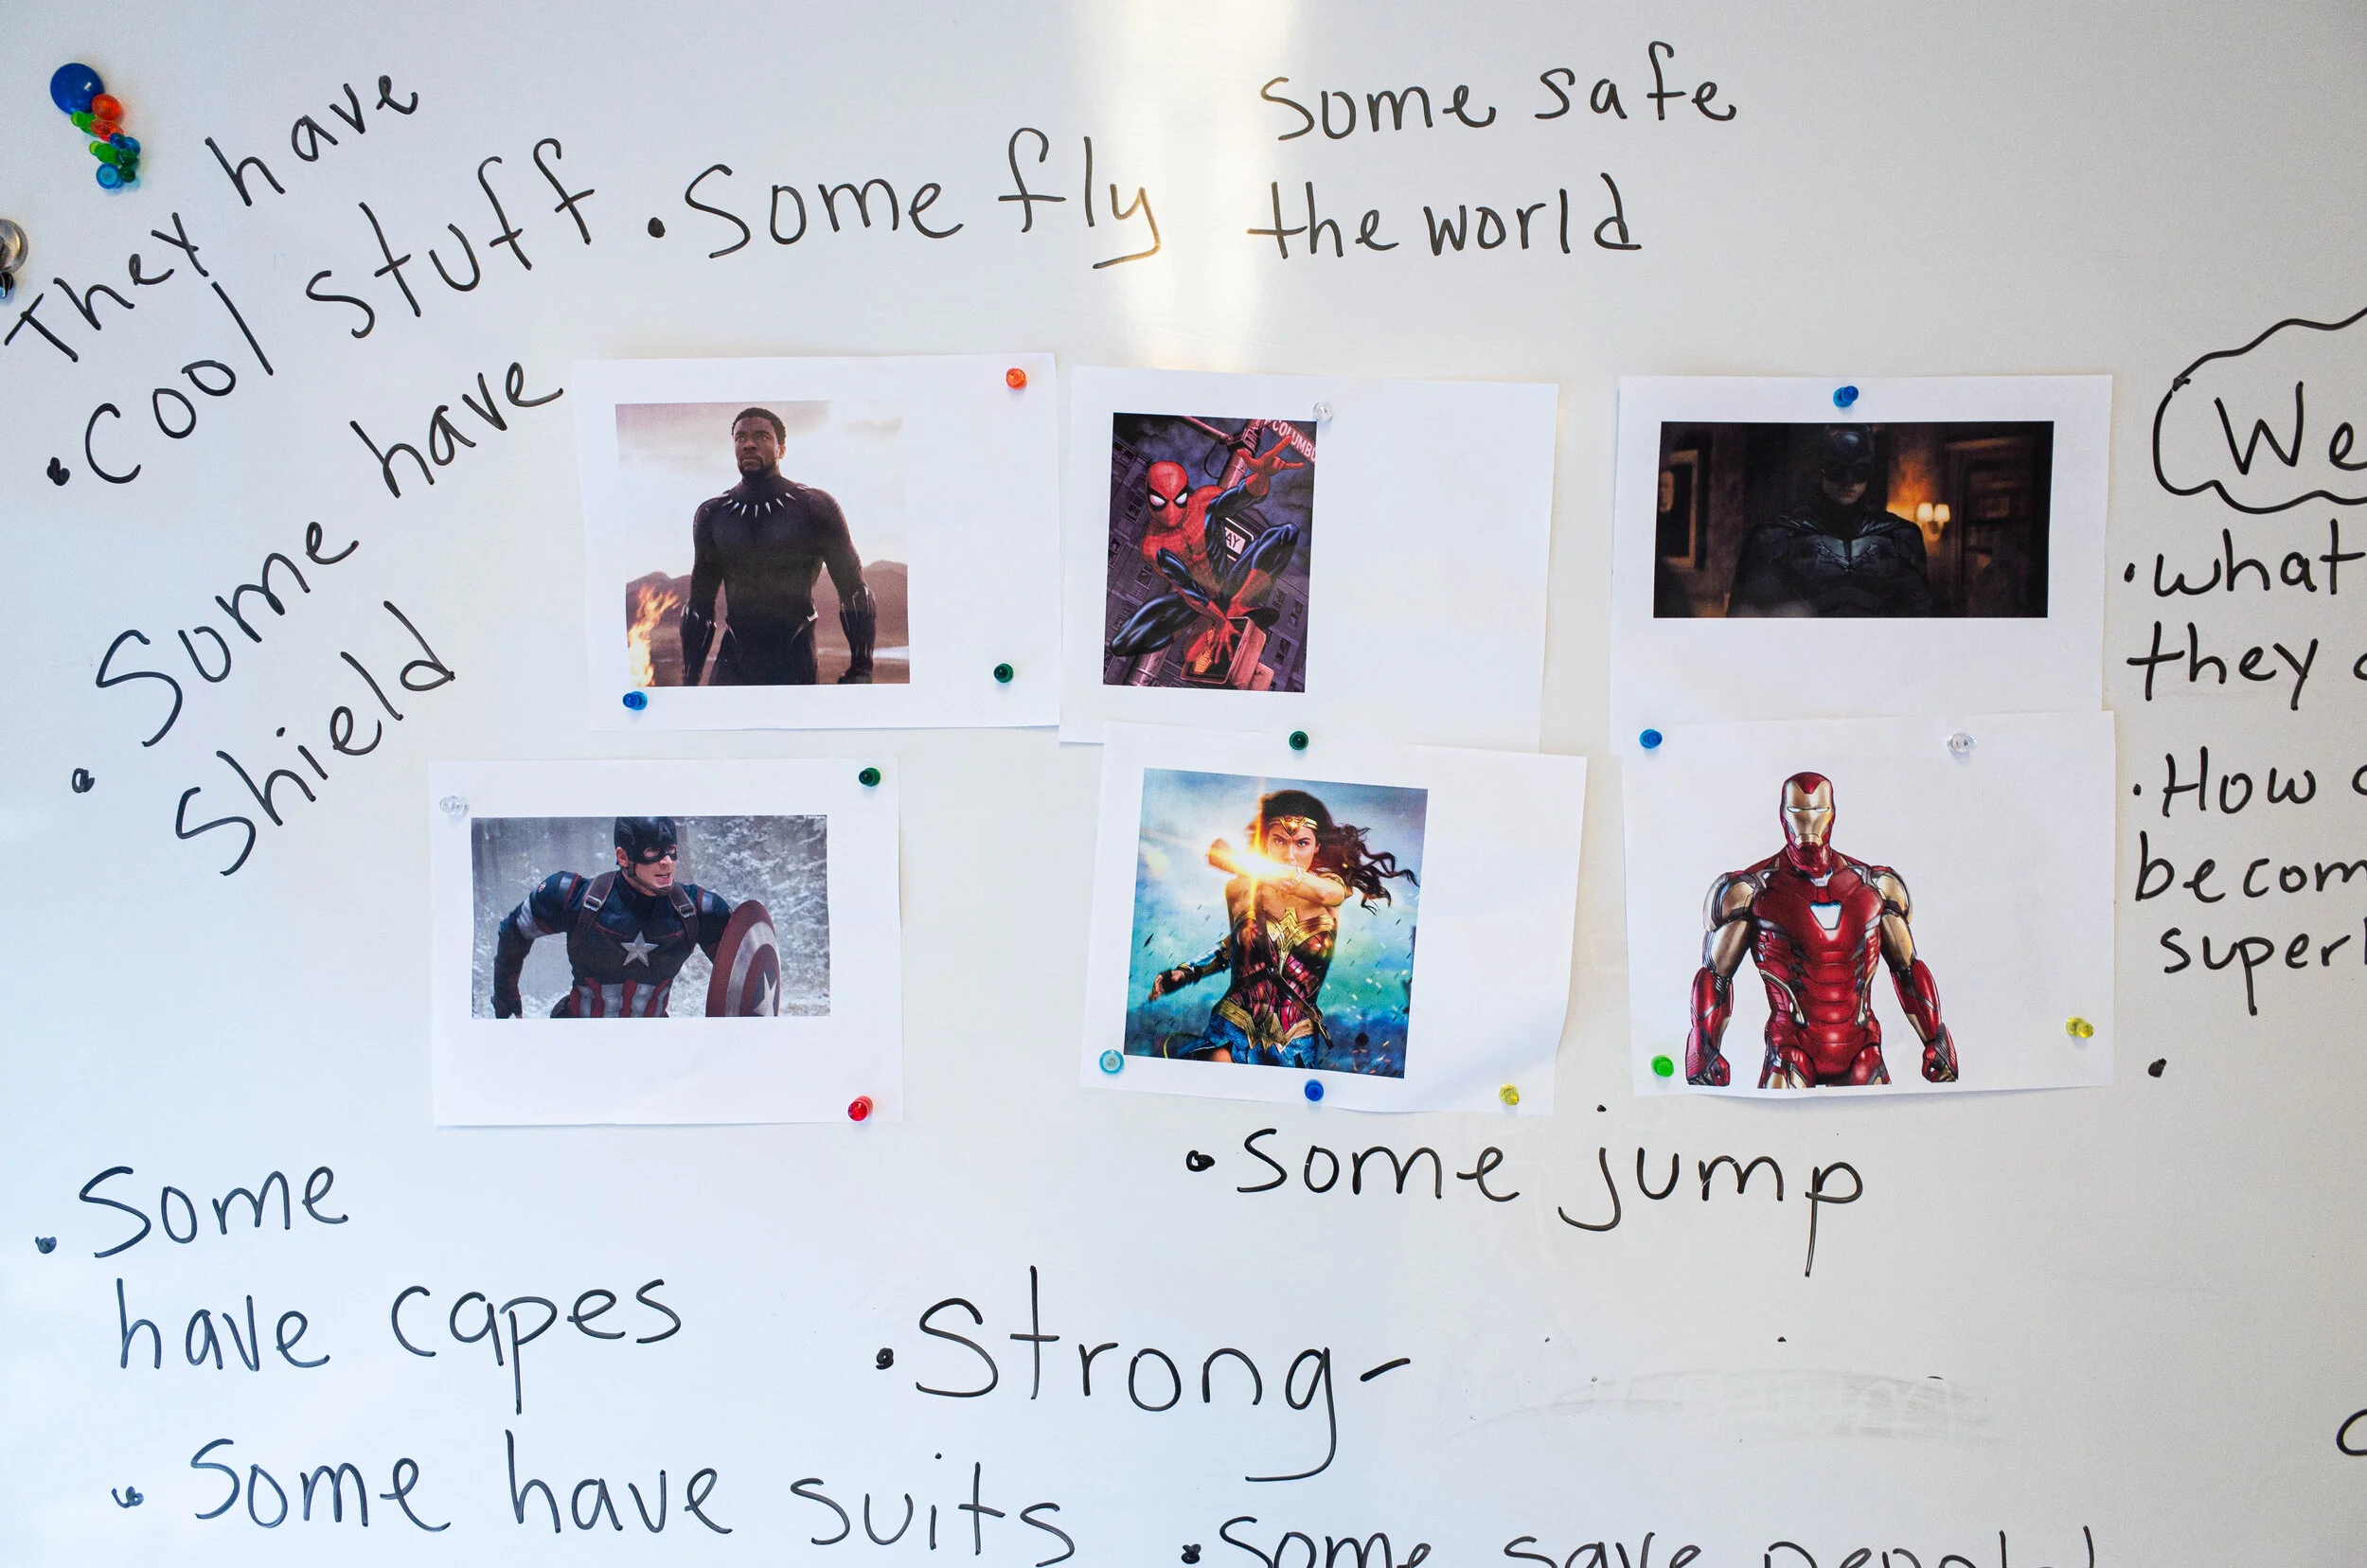 They have
• cool stuff
• Some fly
some safe
the world
• Some have
shield
COLUMBU
AY
We
• what
they
• How
becom
super
•
• some jump
• Some
have capes
• Strong-
• Some have suits
• Some save people